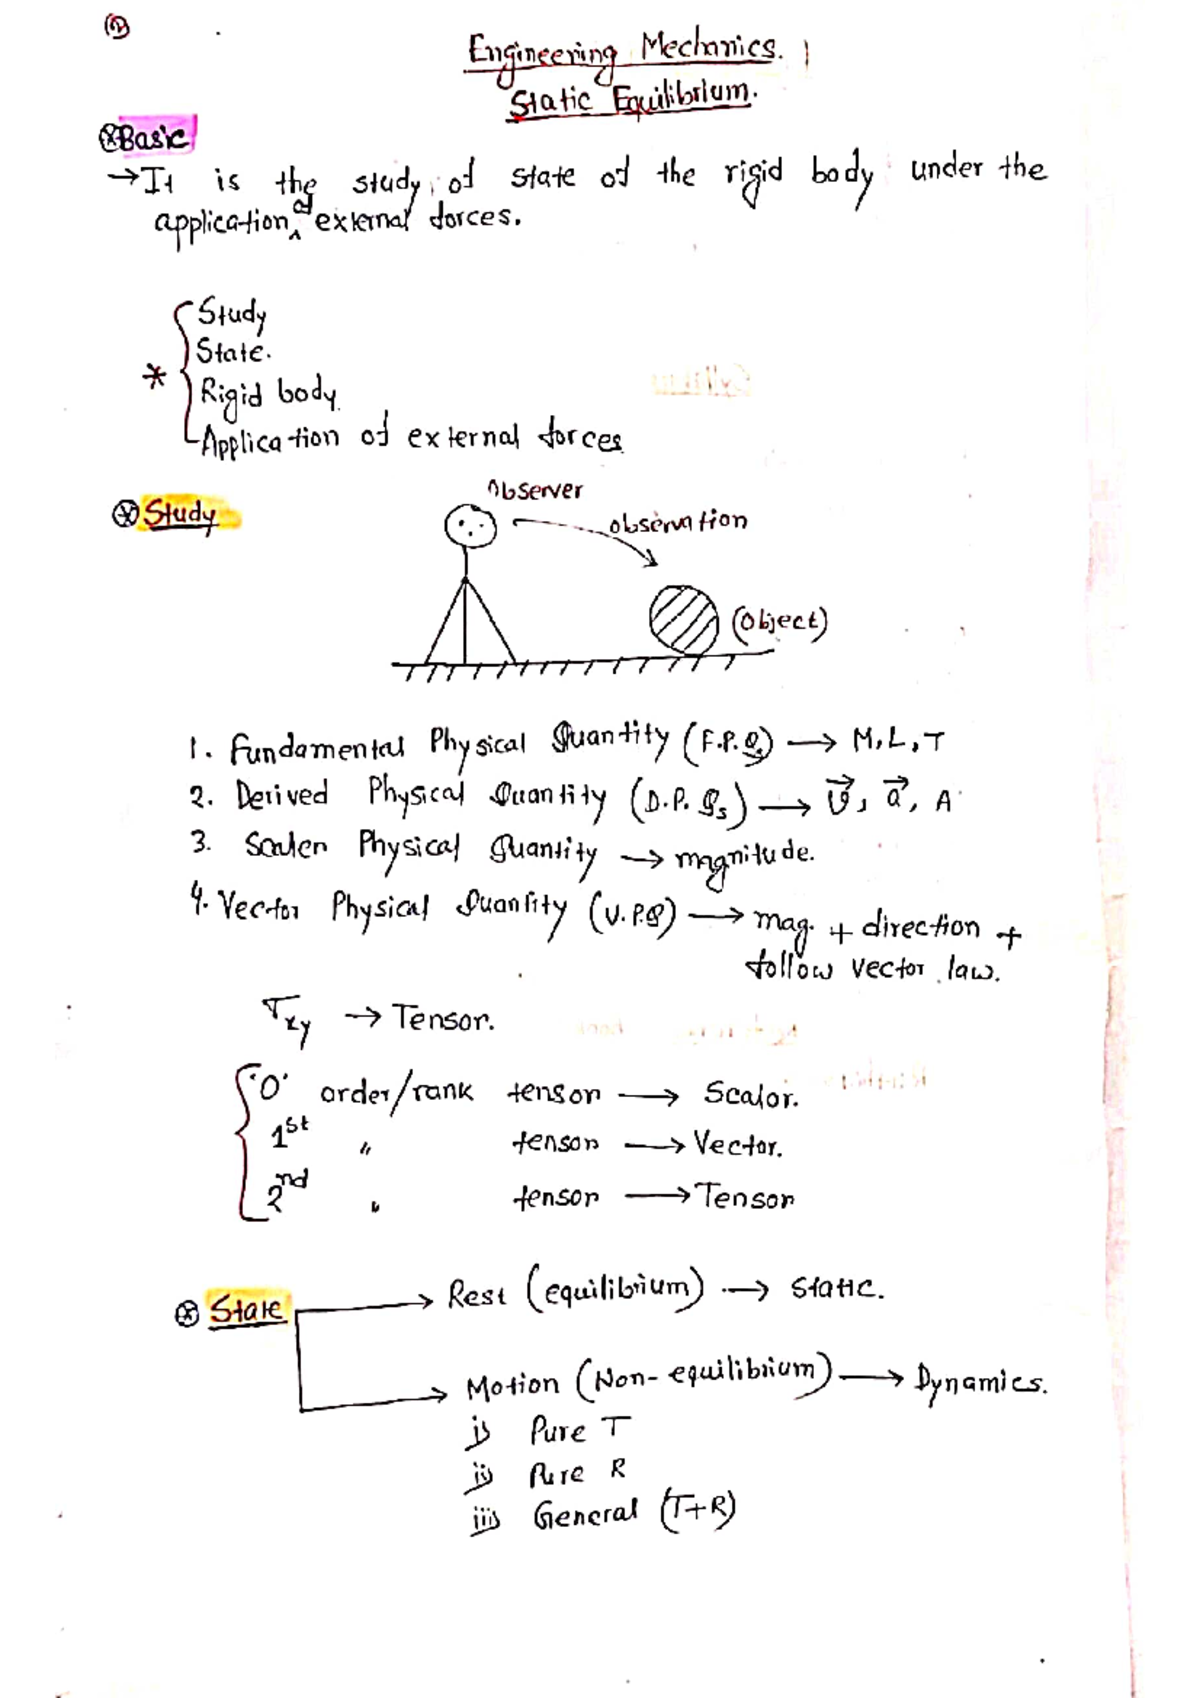 Engineering Mechanics.
Static Equilibrium.
Basic
→ It is the study of state of the rigid body under the
application of external forces.
Study
State.
Rigid body.
Application of external forces
Study
Observer
observation
(object)
1. Fundamental Physical Quantity (F.P.Q) → M, L, T
2. Derived Physical Quantity (D.P.Qs) → v⃗, a⃗, A
3. Scaler Physical Quantity → magnitude.
4. Vector Physical Quantity (V.P.Q) → mag. + direction +
follow vector law.
Txy → Tensor.
'0' order/rank tenson → Scalor.
1st " tenson → Vector.
2nd " tenson → Tenson
State
Rest (equilibrium) → static.
Motion (Non-equilibrium) → Dynamics.
i) Pure T
ii) Pure R
iii) General (T+R)